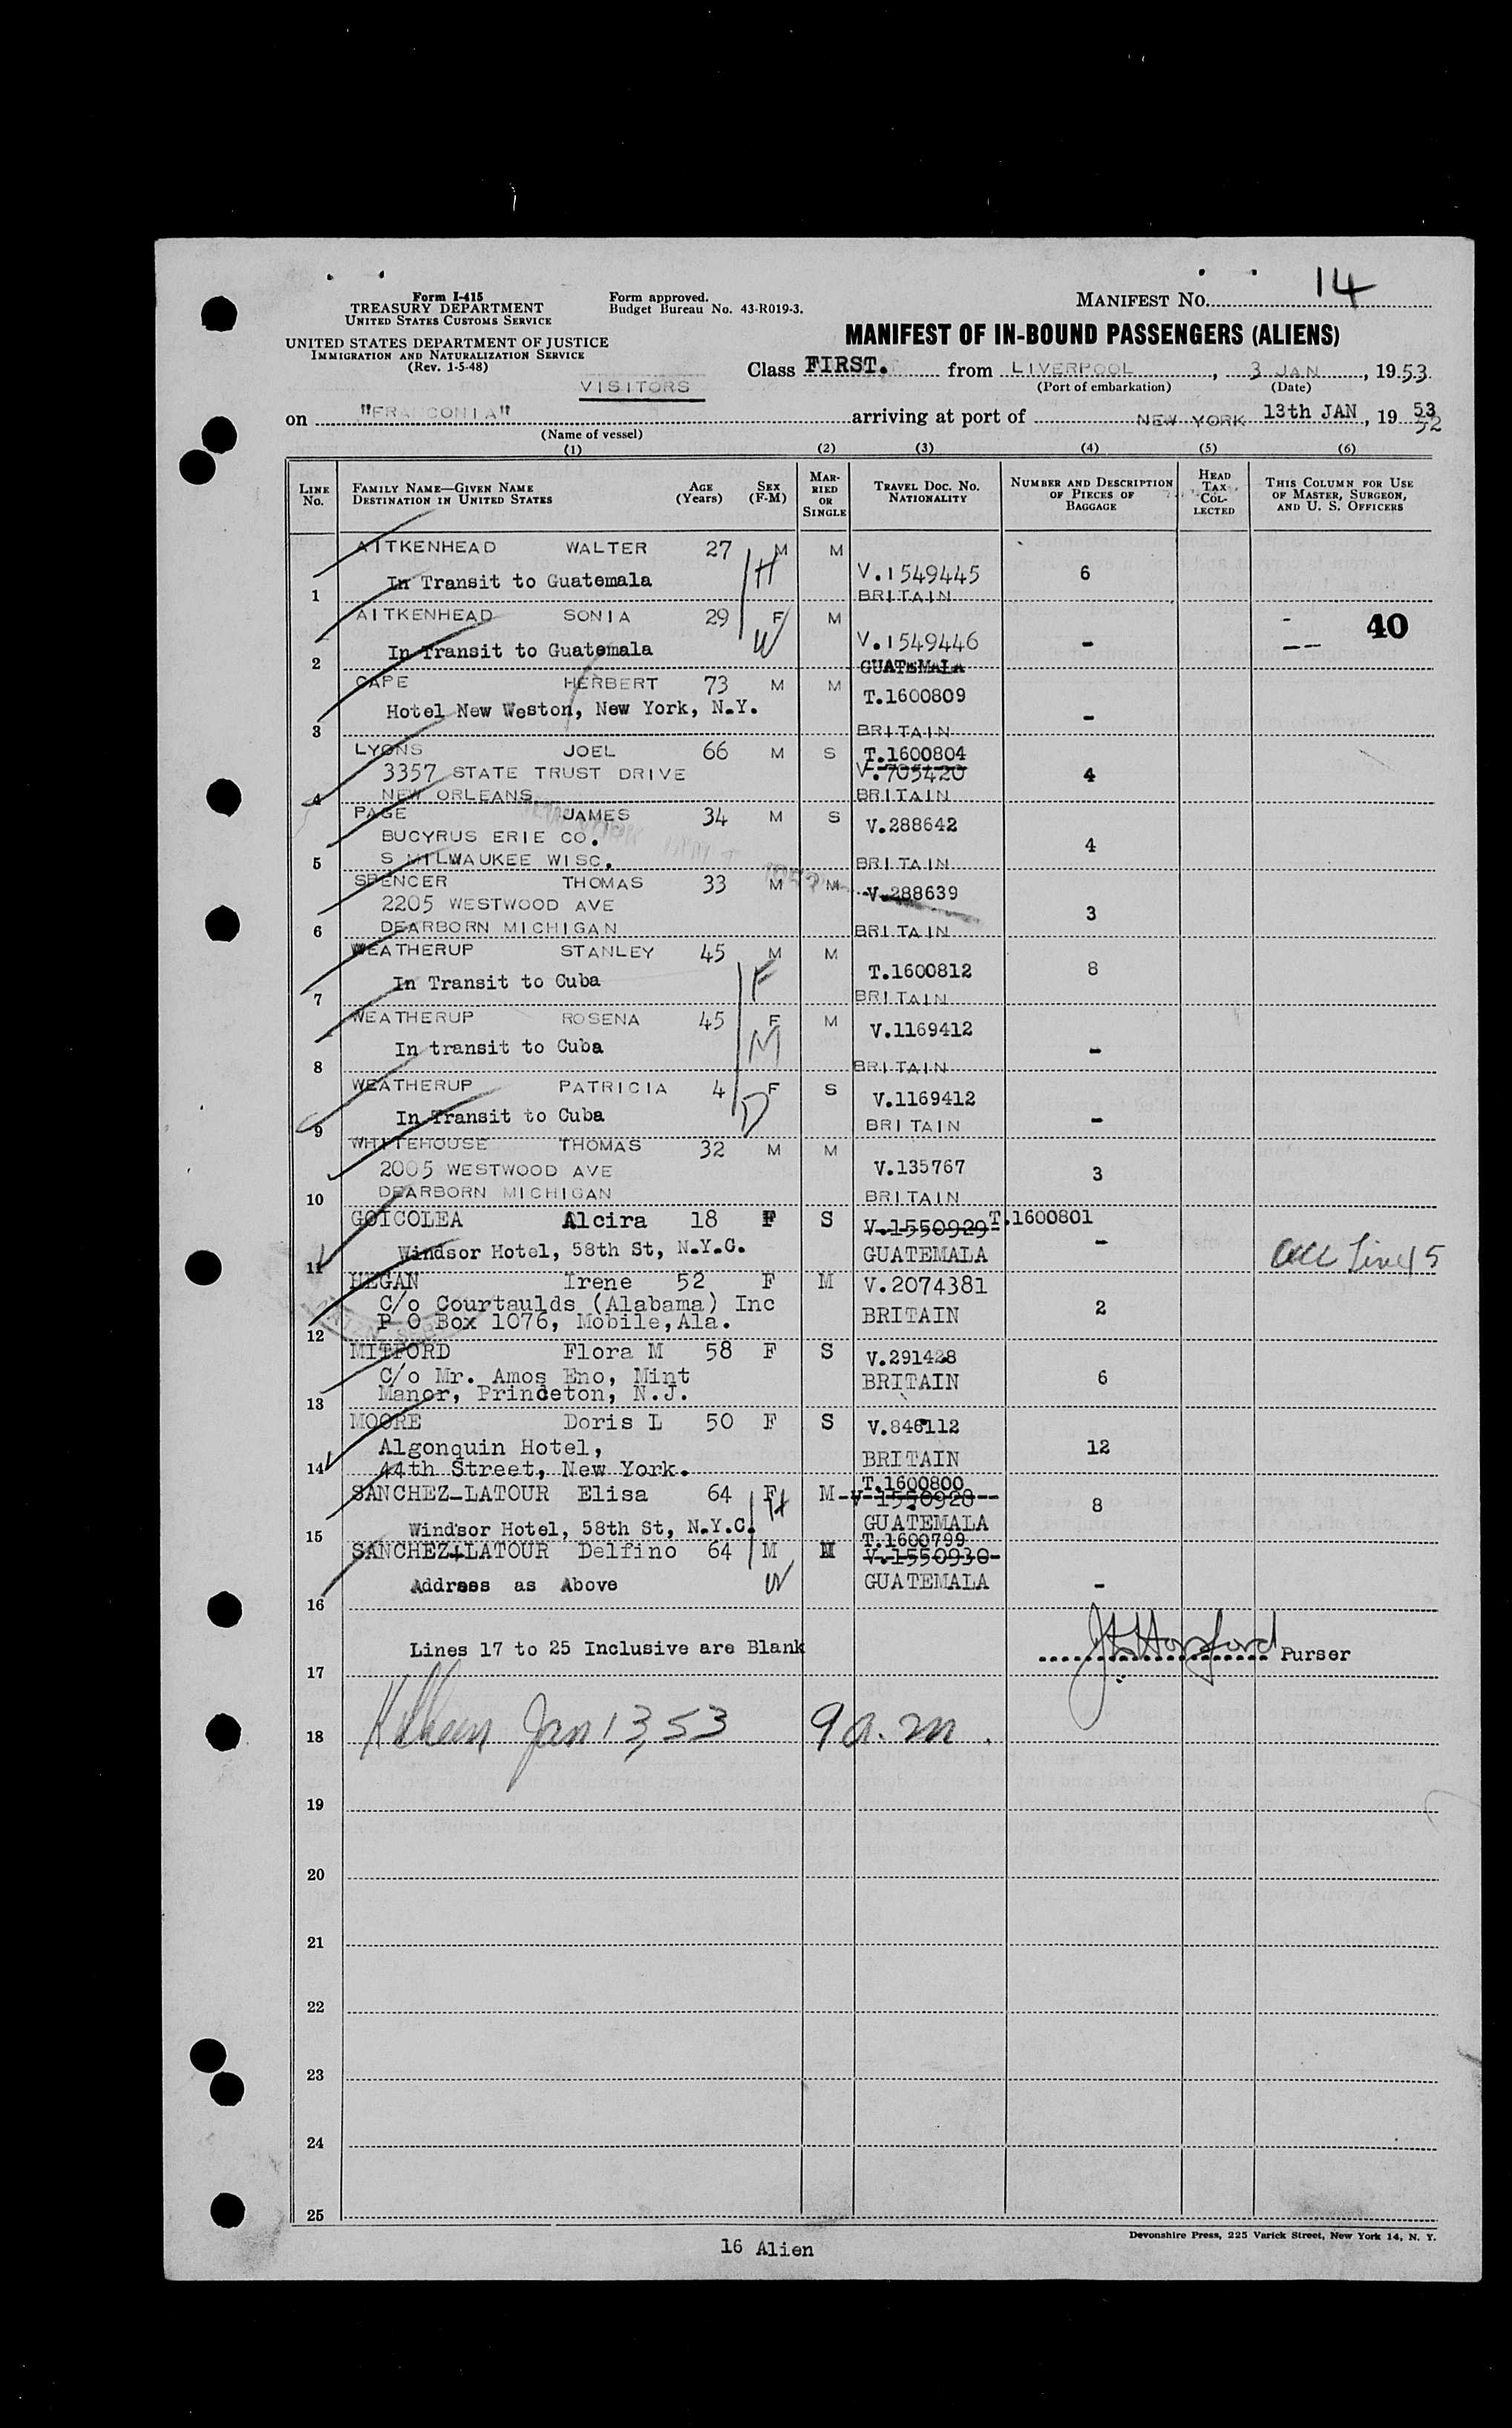 Form I-415
TREASURY DEPARTMENT
UNITED STATES CUSTOMS SERVICE
UNITED STATES DEPARTMENT OF JUSTICE
IMMIGRATION AND NATURALIZATION SERVICE
(Rev. 1-5-48)
Form approved.
Budget Bureau No. 43-R019-3.
MANIFEST NO. 14
MANIFEST OF IN-BOUND PASSENGERS (ALIENS)
Class FIRST. from LIVERPOOL, 3 JAN, 1953
(Port of embarkation) (Date)
VISITORS
on "FRANCONIA" arriving at port of NEW YORK 13th JAN, 19 53 52
(Name of vessel)
(1) (2) (3) (4) (5) (6)
LINE NO. FAMILY NAME—GIVEN NAME DESTINATION IN UNITED STATES AGE (Years) SEX (F-M) MARRIED OR SINGLE TRAVEL DOC. NO. NATIONALITY NUMBER AND DESCRIPTION OF PIECES OF BAGGAGE HEAD TAX COLLECTED THIS COLUMN FOR USE OF MASTER, SURGEON, AND U. S. OFFICERS
AITKENHEAD WALTER 27 M M
In Transit to Guatemala H V.1549445 6
1 BRITAIN
AITKENHEAD SONIA 29 F M 40
In Transit to Guatemala W V.1549446 -
2 GUATEMALA
CAPE HERBERT 73 M M T.1600809
Hotel New Weston, New York, N.Y. -
3 BRITAIN
LYONS JOEL 66 M S T.1600804
3357 STATE TRUST DRIVE V.705420 4
4 NEW ORLEANS BRITAIN
PAGE JAMES 34 M S V.288642
BUCYRUS ERIE CO. 4
5 S MILWAUKEE WISC. BRITAIN
SPENCER THOMAS 33 M M V.288639
2205 WESTWOOD AVE 3
6 DEARBORN MICHIGAN BRITAIN
WEATHERUP STANLEY 45 M M T.1600812 8
In Transit to Cuba F
7 BRITAIN
WEATHERUP ROSENA 45 F M V.1169412
In transit to Cuba M -
8 BRITAIN
WEATHERUP PATRICIA 4 F S V.1169412
In Transit to Cuba D -
9 BRITAIN
WHITEHOUSE THOMAS 32 M M
2005 WESTWOOD AVE V.135767 3
10 DEARBORN MICHIGAN BRITAIN
GOICOLEA Alcira 18 F S V.1550929 T.1600801
Windsor Hotel, 58th St, N.Y.C. GUATEMALA -
11 acc Line 15
HEGAN Irene 52 F M V.2074381
C/o Courtaulds (Alabama) Inc BRITAIN 2
12 P O Box 1076, Mobile, Ala.
MITFORD Flora M 58 F S V.291428
C/o Mr. Amos Eno, Mint BRITAIN 6
13 Manor, Princeton, N.J.
MOORE Doris L 50 F S V.846112
Algonquin Hotel, BRITAIN 12
14 44th Street, New York.
T.1600800
SANCHEZ-LATOUR Elisa 64 F M V 1550928 8
H
15 Windsor Hotel, 58th St, N.Y.C. GUATEMALA
T.1600799
SANCHEZ-LATOUR Delfino 64 M M V.1550930
Address as Above W GUATEMALA -
16
Lines 17 to 25 Inclusive are Blank Purser
17
18 Jan 13, 53 9 a.m.
19
20
21
22
23
24
25
Devonshire Press, 225 Varick Street, New York 14, N. Y.
16 Alien